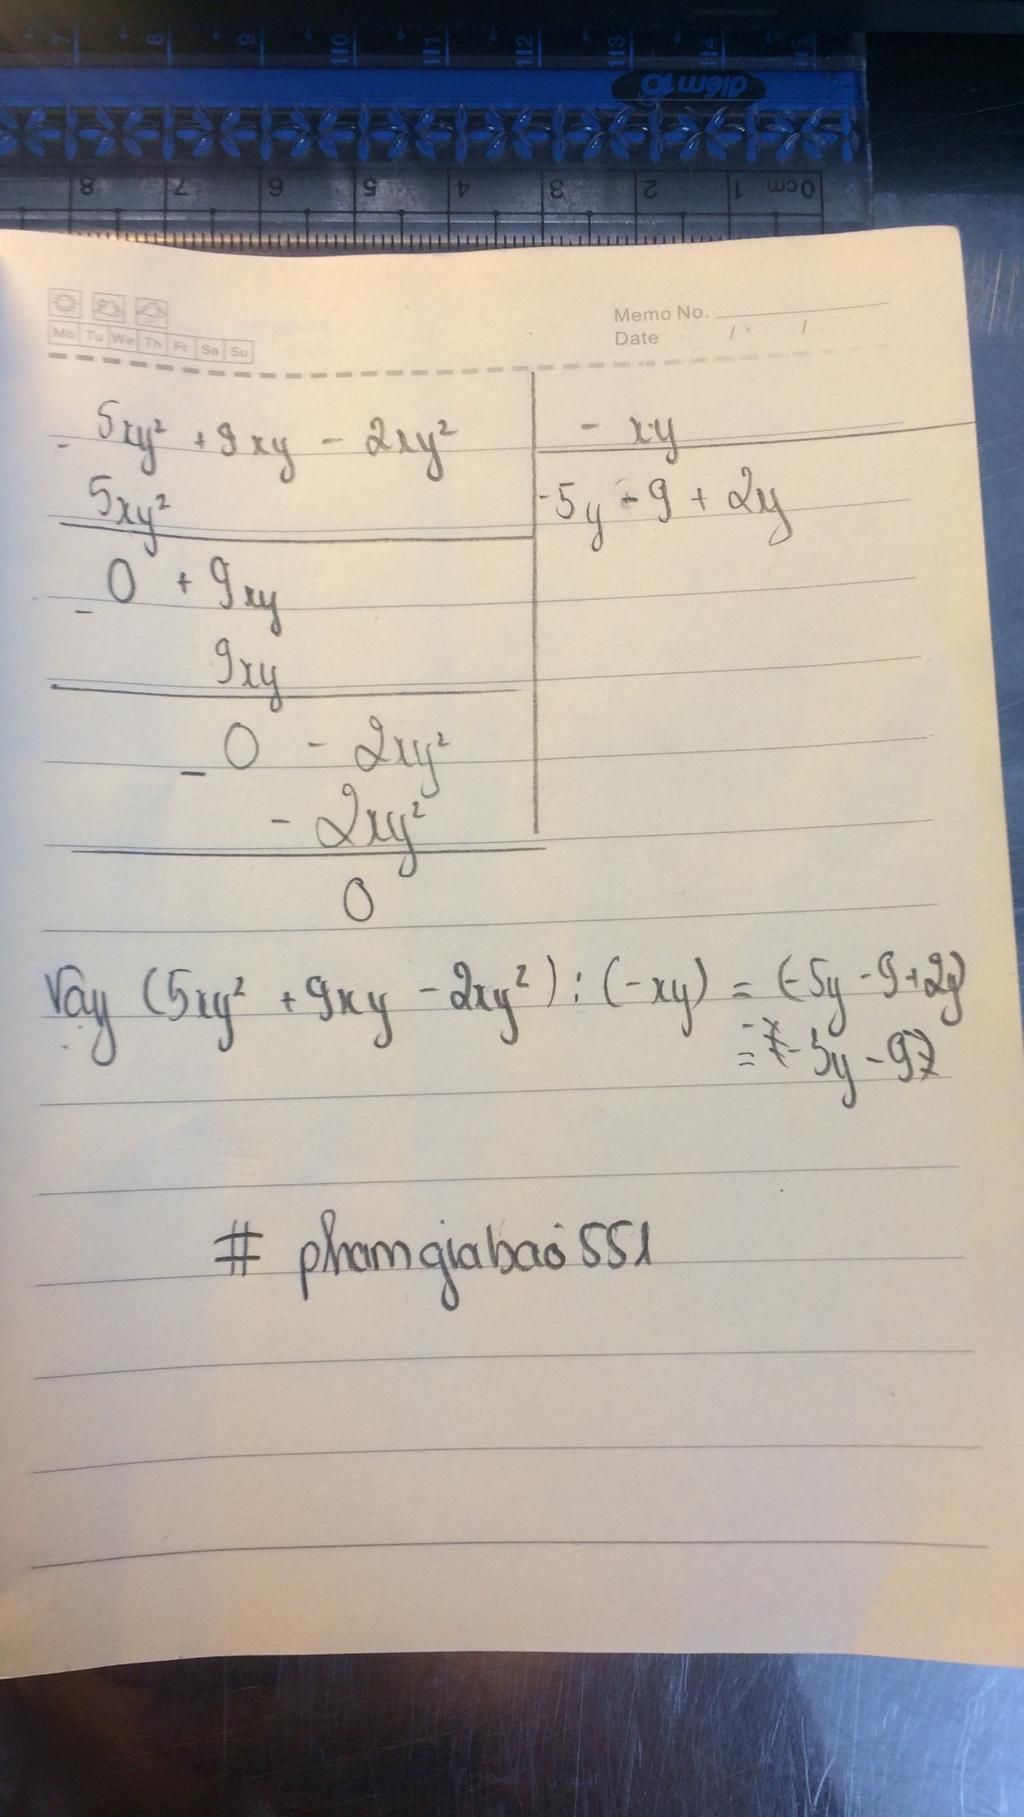 7 8 9 10 11 12 13 14 15
điểm 10
8 7 6 5 4 3 2 1 0cm
Mo Tu We Th Fr Sa Su
Memo No.
Date / /
- 5xy² + 9xy - 2xy² - xy
5xy² -5y - 9 + 2y
- 0 + 9xy
9xy
- 0 - 2xy²
- 2xy²
0
Vậy (5xy² + 9xy - 2xy²) : (-xy) = (-5y - 9 + 2y)
= - 5y - 9
# phamgiabao551